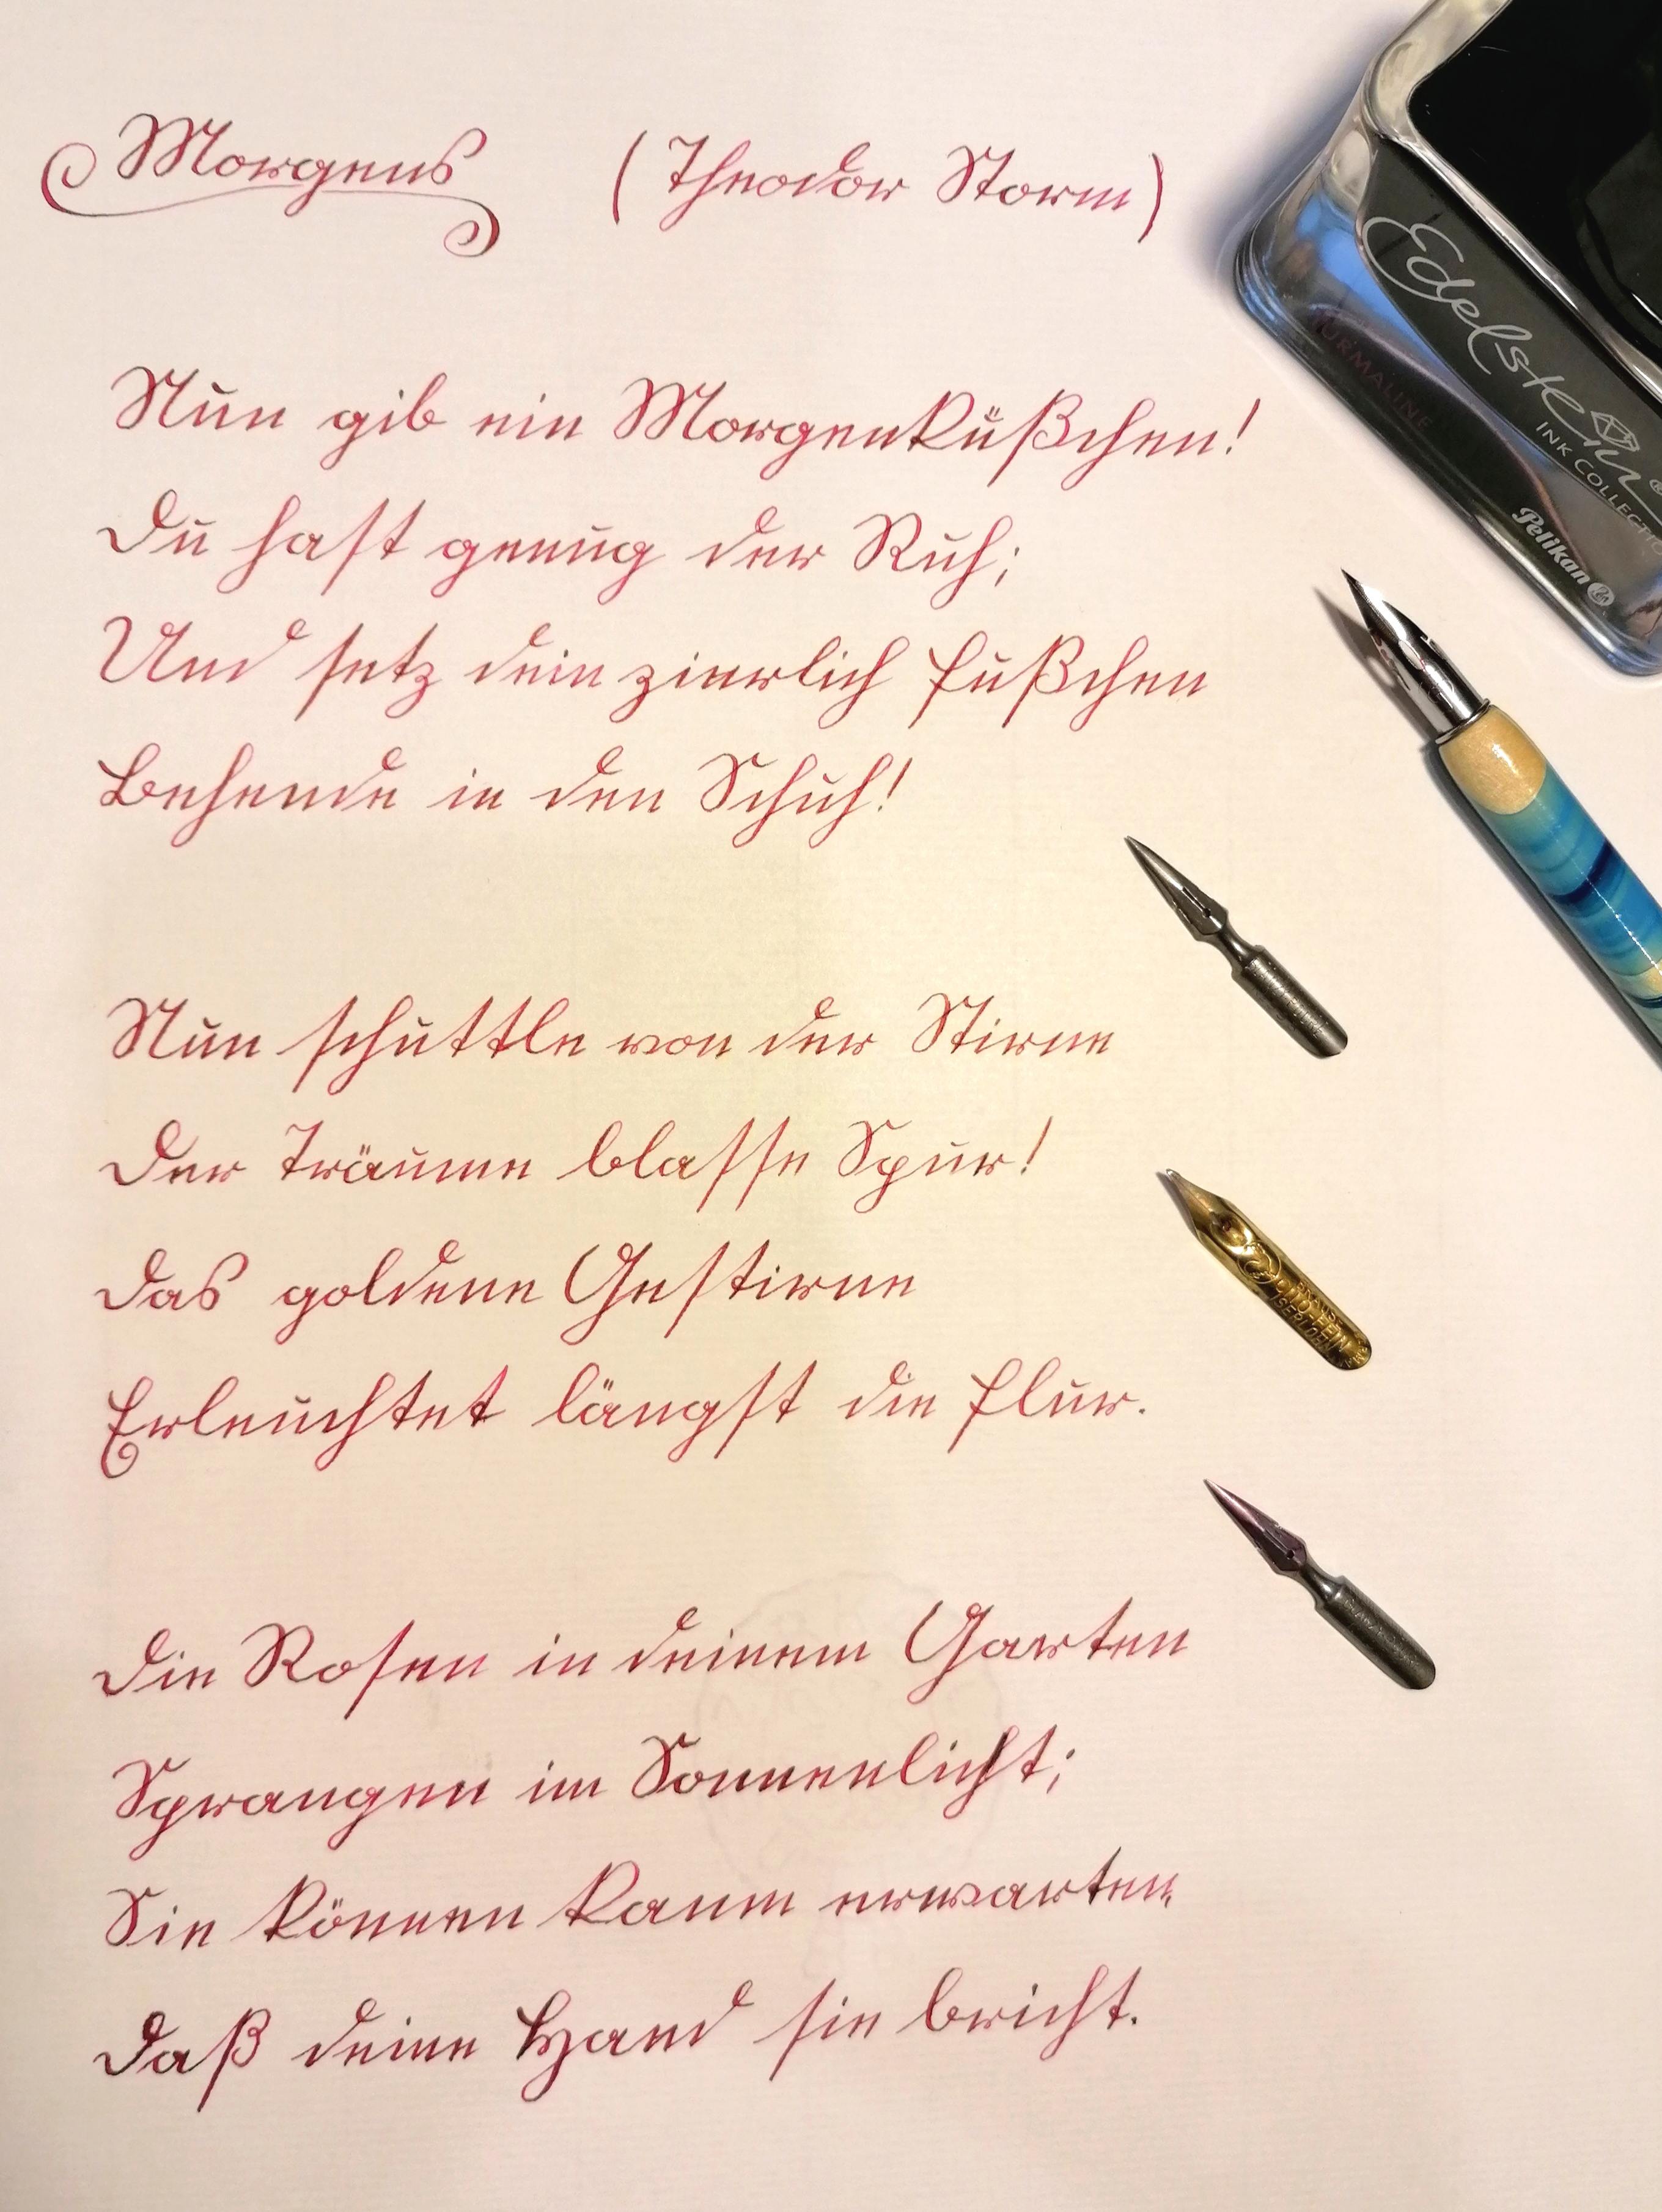 Morgens (Theodor Storm)
Nun gib ein Morgenküßchen!
Du hast genug der Ruh;
Und setz dein zierlich Fußchen
Behende in den Schuh!
Nun schuttle von der Stirne
Der Träume blasse Spur!
Das goldene Gestirne
Erleuchtet längst die Flur.
Die Rosen in deinem Garten
Sprangen im Sonnenlicht;
Sie können kaum erwarten,
Daß deine Hand sie bricht.
Edelstein
INK COLLECTIO
Pelikan
ISERLOHN